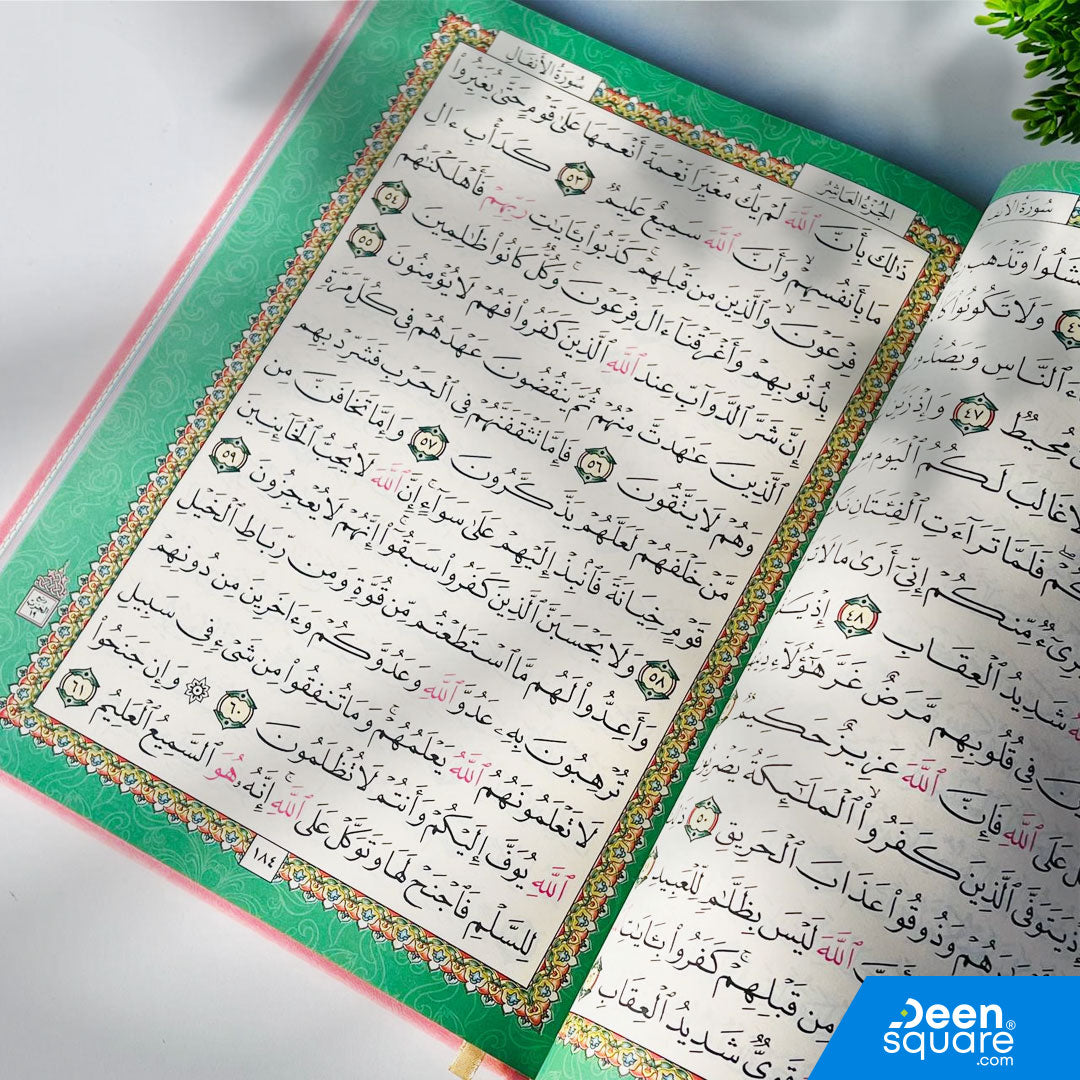 سُورَةُ الأ
شَلُوا۟ وَتَذْهَبَ
وَلَا تَكُونُوا۟
ٱلنَّاسِ وَيَصُدُّونَ
مُحِيطٌ ٤٧ وَإِذْ زَيَّنَ
لَا غَالِبَ لَكُمُ ٱلْيَوْمَ مِنَ
فَلَمَّا تَرَآءَتِ ٱلْفِئَتَانِ نَ
مِّنكُمْ إِنِّىٓ أَرَىٰ مَا لَا تَ
شَدِيدُ ٱلْعِقَابِ ٤٨ إِذْ يَ
فِى قُلُوبِهِم مَّرَضٌ غَرَّ هَـٰٓؤُلَآءِ دِي
عَلَى ٱللَّهِ فَإِنَّ ٱللَّهَ عَزِيزٌ حَكِيمٌ
إِذْ يَتَوَفَّى ٱلَّذِينَ كَفَرُوا۟ ۙ ٱلْمَلَـٰٓئِكَةُ يَضْرِبُونَ
وَذُوقُوا۟ عَذَابَ ٱلْحَرِيقِ ٥٠
ٱللَّهَ لَيْسَ بِظَلَّـٰمٍ لِّلْعَبِيدِ
مِن قَبْلِهِمْ ۚ كَفَرُوا۟ بِـَٔايَـٰتِ
قَوِىٌّ شَدِيدُ ٱلْعِقَابِ
الجُزْءُ العَاشِرُ سُورَةُ الأَنفَالِ
ذَٰلِكَ بِأَنَّ ٱللَّهَ لَمْ يَكُ مُغَيِّرًا نِّعْمَةً أَنْعَمَهَا عَلَىٰ قَوْمٍ حَتَّىٰ يُغَيِّرُوا۟
مَا بِأَنفُسِهِمْ ۙ وَأَنَّ ٱللَّهَ سَمِيعٌ عَلِيمٌ ٥٣ كَدَأْبِ ءَالِ
فِرْعَوْنَ ۙ وَٱلَّذِينَ مِن قَبْلِهِمْ ۚ كَذَّبُوا۟ بِـَٔايَـٰتِ رَبِّهِمْ فَأَهْلَكْنَـٰهُم
بِذُنُوبِهِمْ وَأَغْرَقْنَآ ءَالَ فِرْعَوْنَ ۚ وَكُلٌّ كَانُوا۟ ظَـٰلِمِينَ ٥٤
إِنَّ شَرَّ ٱلدَّوَآبِّ عِندَ ٱللَّهِ ٱلَّذِينَ كَفَرُوا۟ فَهُمْ لَا يُؤْمِنُونَ ٥٥
ٱلَّذِينَ عَـٰهَدتَّ مِنْهُمْ ثُمَّ يَنقُضُونَ عَهْدَهُمْ فِى كُلِّ مَرَّةٍ
وَهُمْ لَا يَتَّقُونَ ٥٦ فَإِمَّا تَثْقَفَنَّهُمْ فِى ٱلْحَرْبِ فَشَرِّدْ بِهِم
مَّنْ خَلْفَهُمْ لَعَلَّهُمْ يَذَّكَّرُونَ ٥٧ وَإِمَّا تَخَافَنَّ مِن
قَوْمٍ خِيَانَةً فَٱنۢبِذْ إِلَيْهِمْ عَلَىٰ سَوَآءٍ ۚ إِنَّ ٱللَّهَ لَا يُحِبُّ ٱلْخَآئِنِينَ
٥٨ وَلَا يَحْسَبَنَّ ٱلَّذِينَ كَفَرُوا۟ سَبَقُوٓا۟ ۚ إِنَّهُمْ لَا يُعْجِزُونَ ٥٩
وَأَعِدُّوا۟ لَهُم مَّا ٱسْتَطَعْتُم مِّن قُوَّةٍ وَمِن رِّبَاطِ ٱلْخَيْلِ
تُرْهِبُونَ بِهِۦ عَدُوَّ ٱللَّهِ وَعَدُوَّكُمْ وَءَاخَرِينَ مِن دُونِهِمْ
لَا تَعْلَمُونَهُمُ ٱللَّهُ يَعْلَمُهُمْ ۚ وَمَا تُنفِقُوا۟ مِن شَىْءٍ فِى سَبِيلِ
ٱللَّهِ يُوَفَّ إِلَيْكُمْ وَأَنتُمْ لَا تُظْلَمُونَ ٦٠ ۞ وَإِن جَنَحُوا۟
لِلسَّلْمِ فَٱجْنَحْ لَهَا وَتَوَكَّلْ عَلَى ٱللَّهِ ۚ إِنَّهُۥ هُوَ ٱلسَّمِيعُ ٱلْعَلِيمُ ٦١
١٨٤
Deen
square®
.com